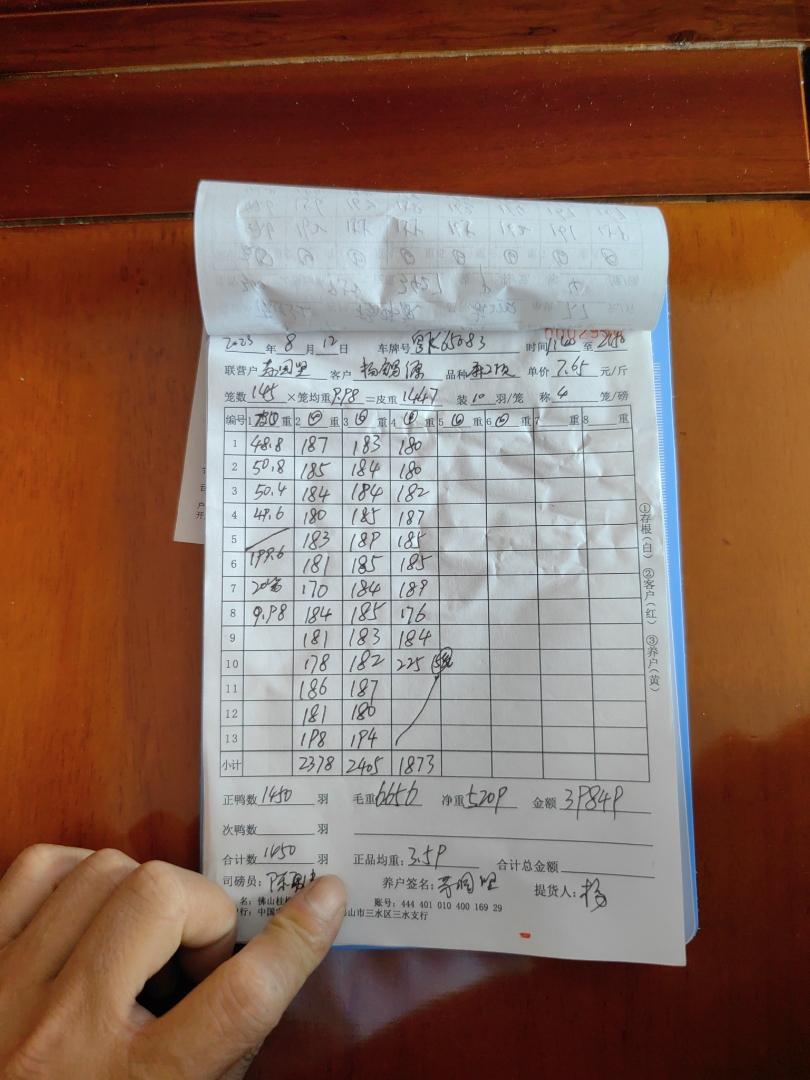 2023 年 8 月 12 日 车牌号 粤K65083 时间 1140 至
联营户 客户 杨 源 品种 单价 7.65 元/斤
笼数 145 ×笼均重 9.98 =皮重 1447 装 10 羽/笼 称 4 笼/磅
编号 1 重 2 ④ 重 3 ④ 重 4 ④ 重 5 ④ 重 6 ④ 重 7 重 8 重
1 48.8 187 183 180
2 50.8 185 184 180
3 50.4 184 184 182
4 49.6 180 185 187
5 183 189 185
6 199.6 181 185 185
7 20只 170 184 189
8 9.98 184 185 176
9 181 183 184
10 178 182 225
11 186 187
12 181 180
13 198 194
小计 2378 2405 1873
正鸭数 1450 羽 毛重 6656 净重 5209 金额 39849
次鸭数 羽
合计数 1450 羽 正品均重: 3.59 合计总金额
司磅员: 陈 养户签名: 提货人: 杨
名: 佛山 账号: 444 401 010 400 169 29
行: 中国 山市三水区三水支行
①存根(白) ②客户(红) ③养户(黄)